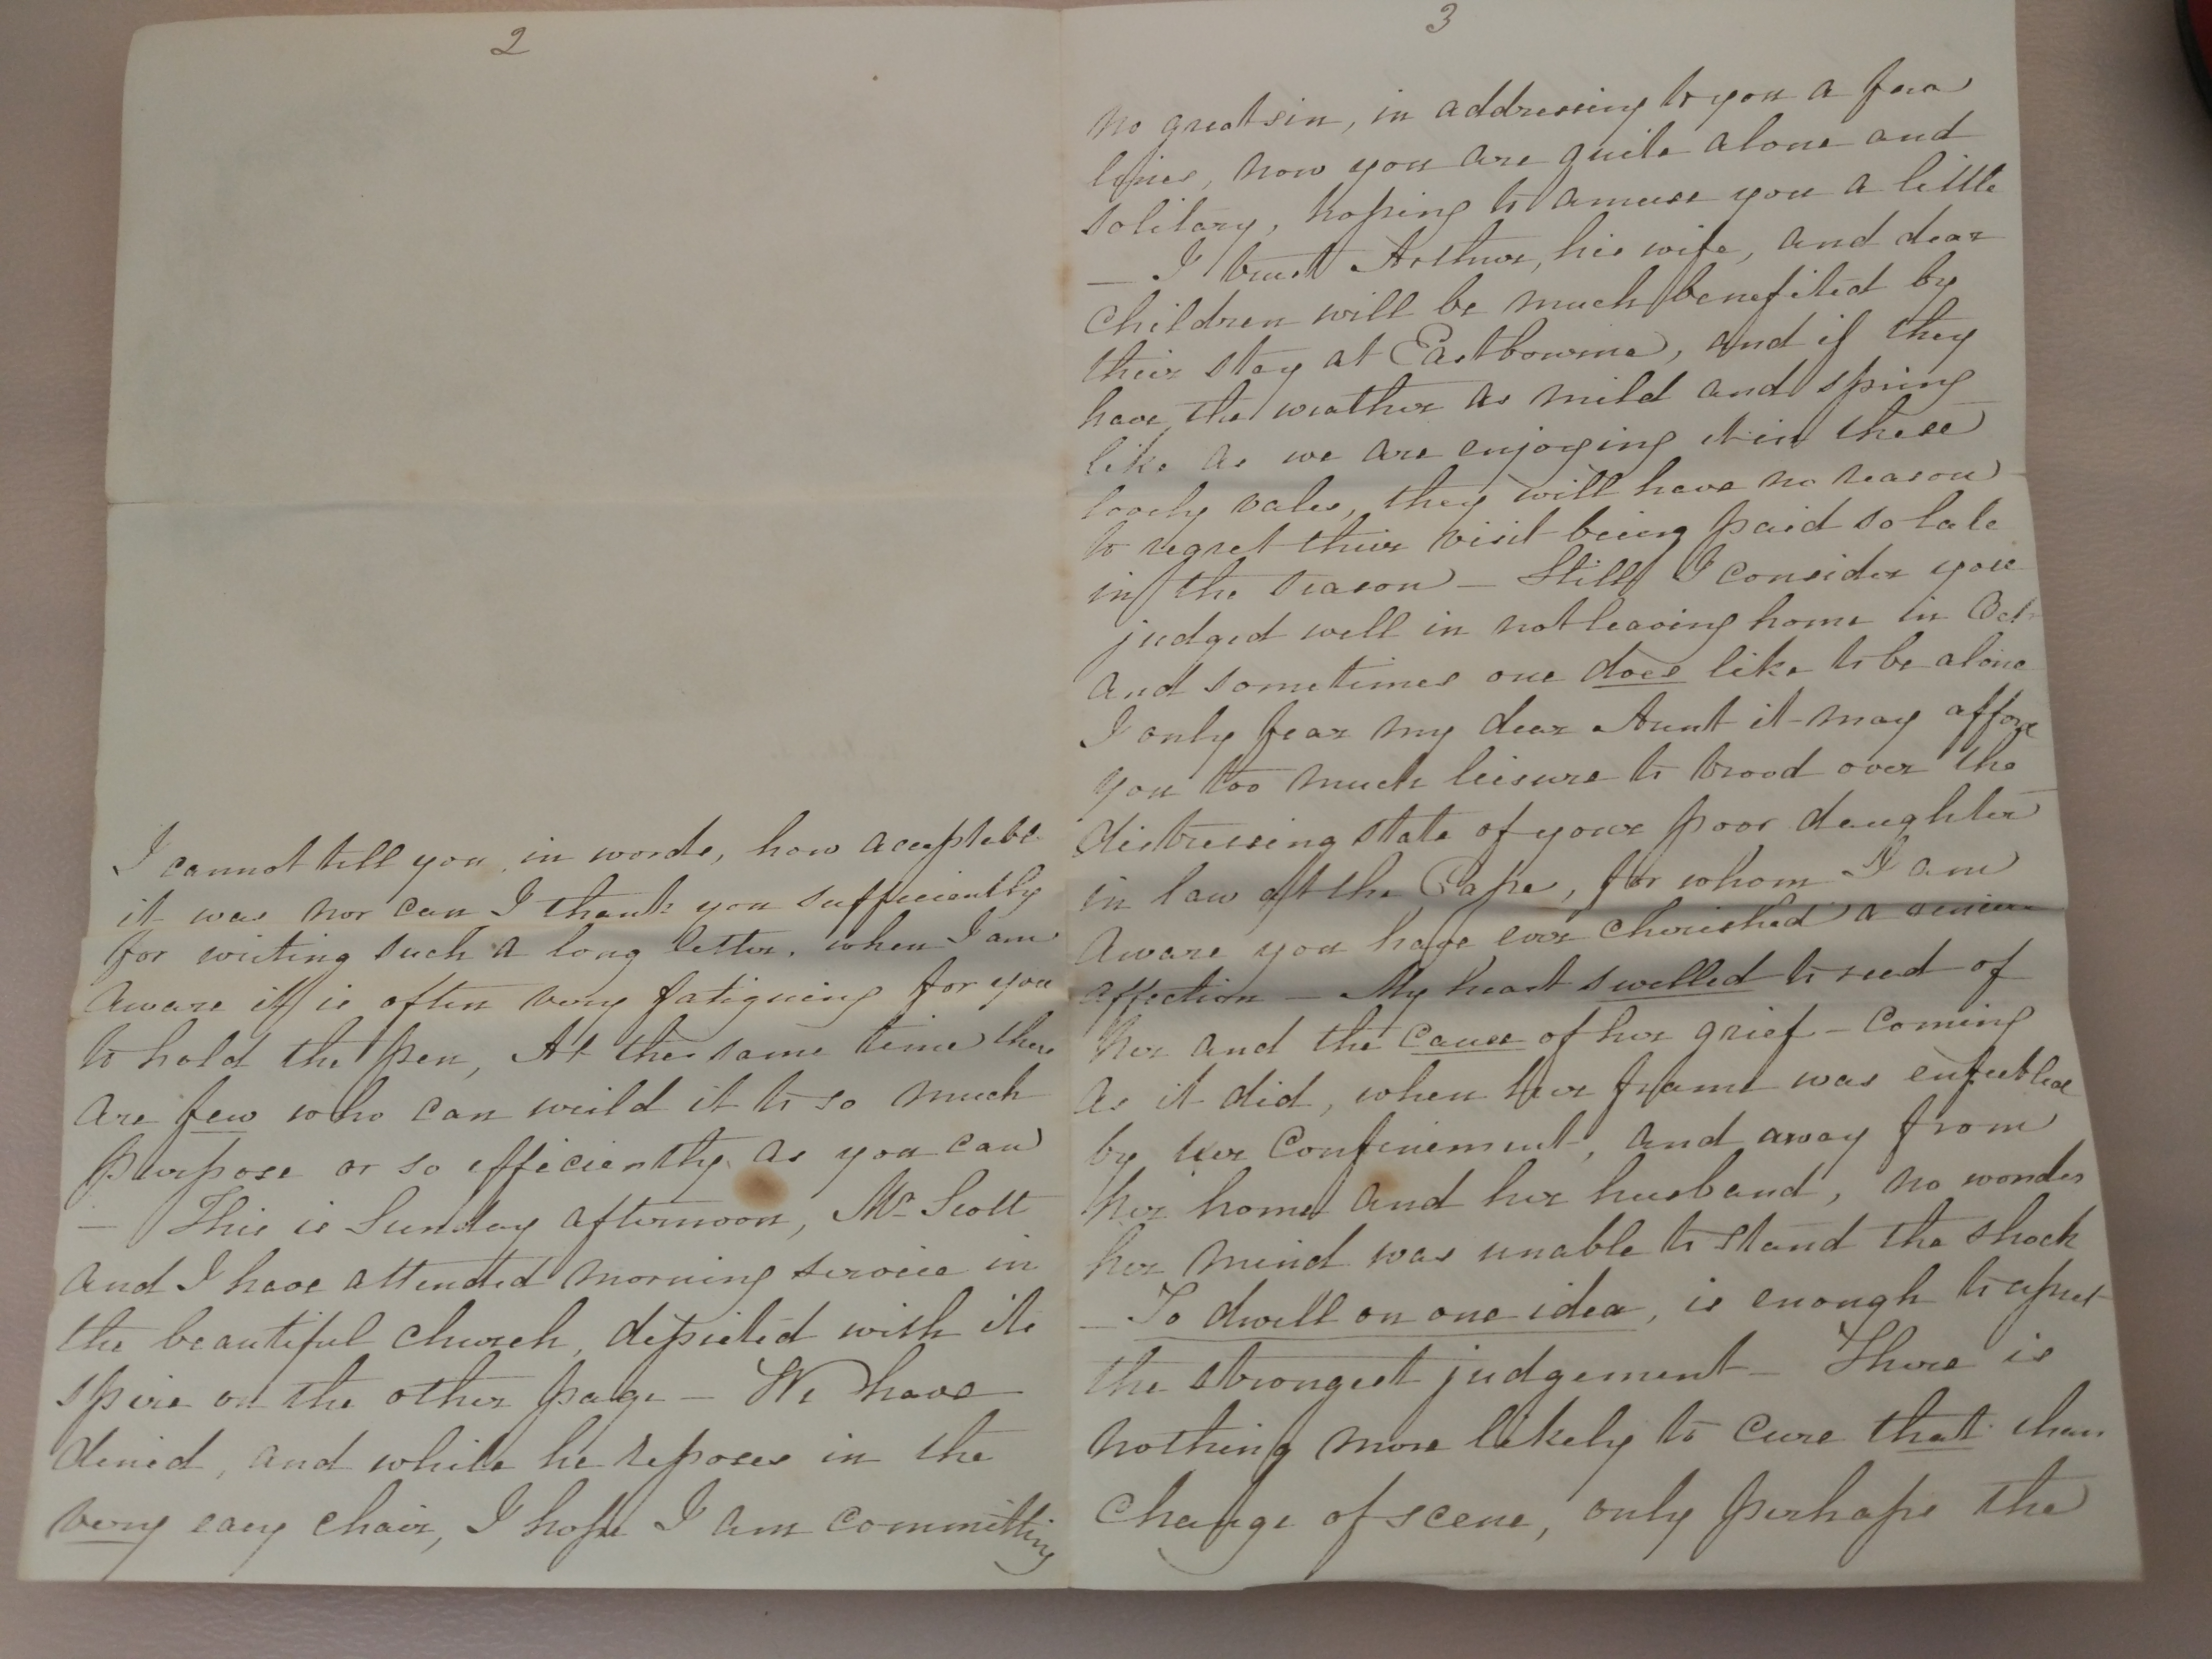 2
I cannot tell you, in words, how acceptable
it was nor can I thank you sufficiently
for writing such a long letter, when I am
aware it is often very fatiguing for you
to hold the pen, At the same time there
are few who can wield it to so much
purpose or so efficiently as you can
— This is Sunday afternoon, Mr Scott
and I have attended morning service in
the beautiful church, depicted with its
spire on the other page — We have
dined, and while he reposes in the
very easy chair, I hope I am committing
3
no great sin, in addressing to you a few
lines, now you are quite alone and
solitary, hoping to amuse you a little
— I trust Arthur, his wife, and dear
children will be much benefited by
their stay at Eastbourne, and if they
have the weather as mild and spring
like as we are enjoying it in these
lovely vales, they will have no reason
to regret their visit being paid so late
in the season — Still I consider you
judged well in not leaving home in Octr
and sometimes one does like to be alone
I only fear my dear Aunt it may afford
you too much leisure to brood over the
distressing state of your poor daughter
in law at the Cape, for whom I am
aware you have ever cherished a sincere
affection — My heart swelled to read of
her and the cause of her grief — Coming
as it did, when her frame was enfeebled
by her confinement, and away from
her home and her husband, no wonder
her mind was unable to stand the shock
— To dwell on one idea, is enough to upset
the strongest judgement — There is
nothing more likely to cure that than
change of scene, only perhaps the